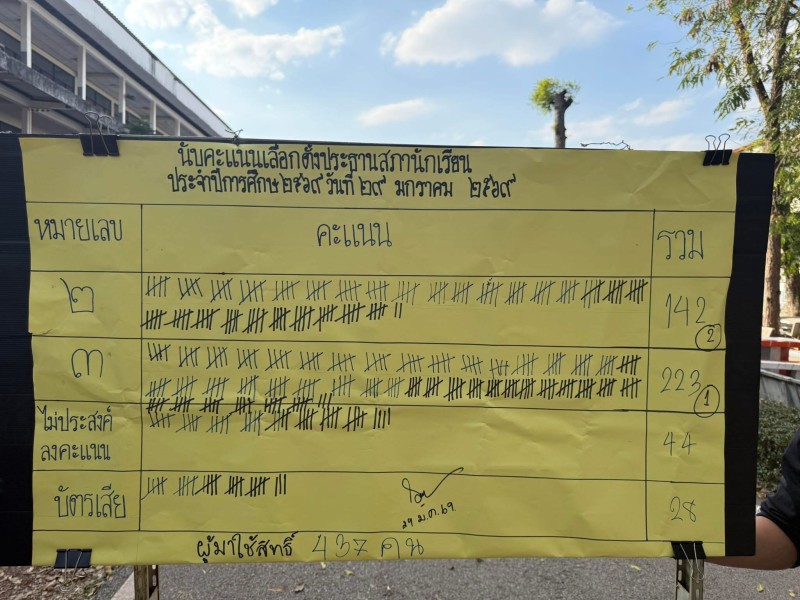 นับคะแนนเลือกตั้งประธานสภานักเรียน
ประจำปีการศึกษา๒๕๖๙ วันที่ ๒๙ มกราคม ๒๕๖๙
หมายเลข คะแนน รวม
๒ 142
2
๓ 223
1
ไม่ประสงค์
ลงคะแนน 44
บัตรเสีย 28
๒๙ ม.ค. ๖๙
ผู้มาใช้สิทธิ์ 437 คน